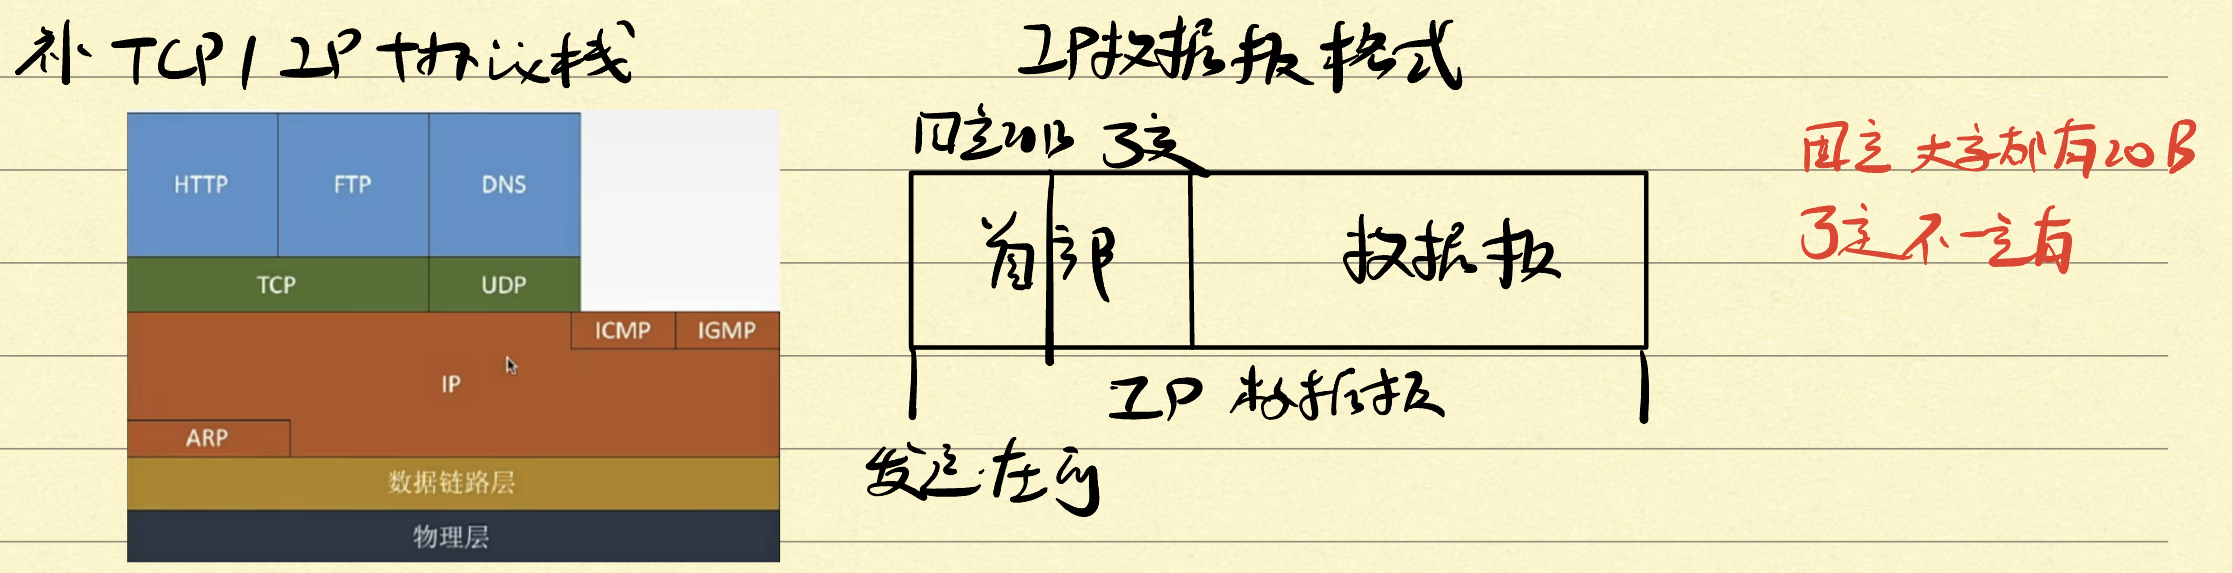 补 TCP/IP 协议栈
HTTP FTP DNS
TCP UDP
ICMP IGMP
IP
ARP
数据链路层
物理层
IP数据报格式
固定20B 可变
首部 数据报
IP 数据报
发送在前
固定 大家都有20B
可变不一定有